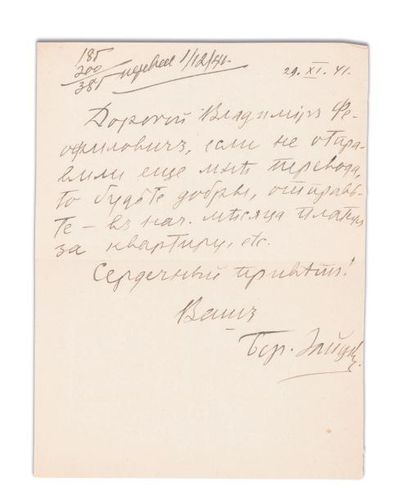 185
200
385
29. XI. 41.
Дорогой Владимiръ Фе-
офиловичъ, если не отпра-
вили еще мнѣ перевода,
то будьте добры, отправь-
те – въ нач. мѣсяца платить
за квартиру, etc.
Сердечный привѣтъ!
Вашъ
Бор. Зайцевъ